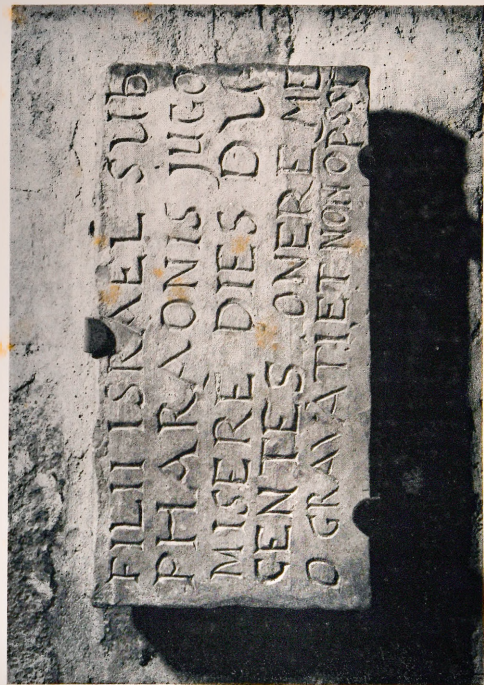 FILII ISRAEL SUb
PHARAONIS JUGO
MISERE DIES DU
CENTES ONERE ME
O GRAVATI ET NON OPSŨ